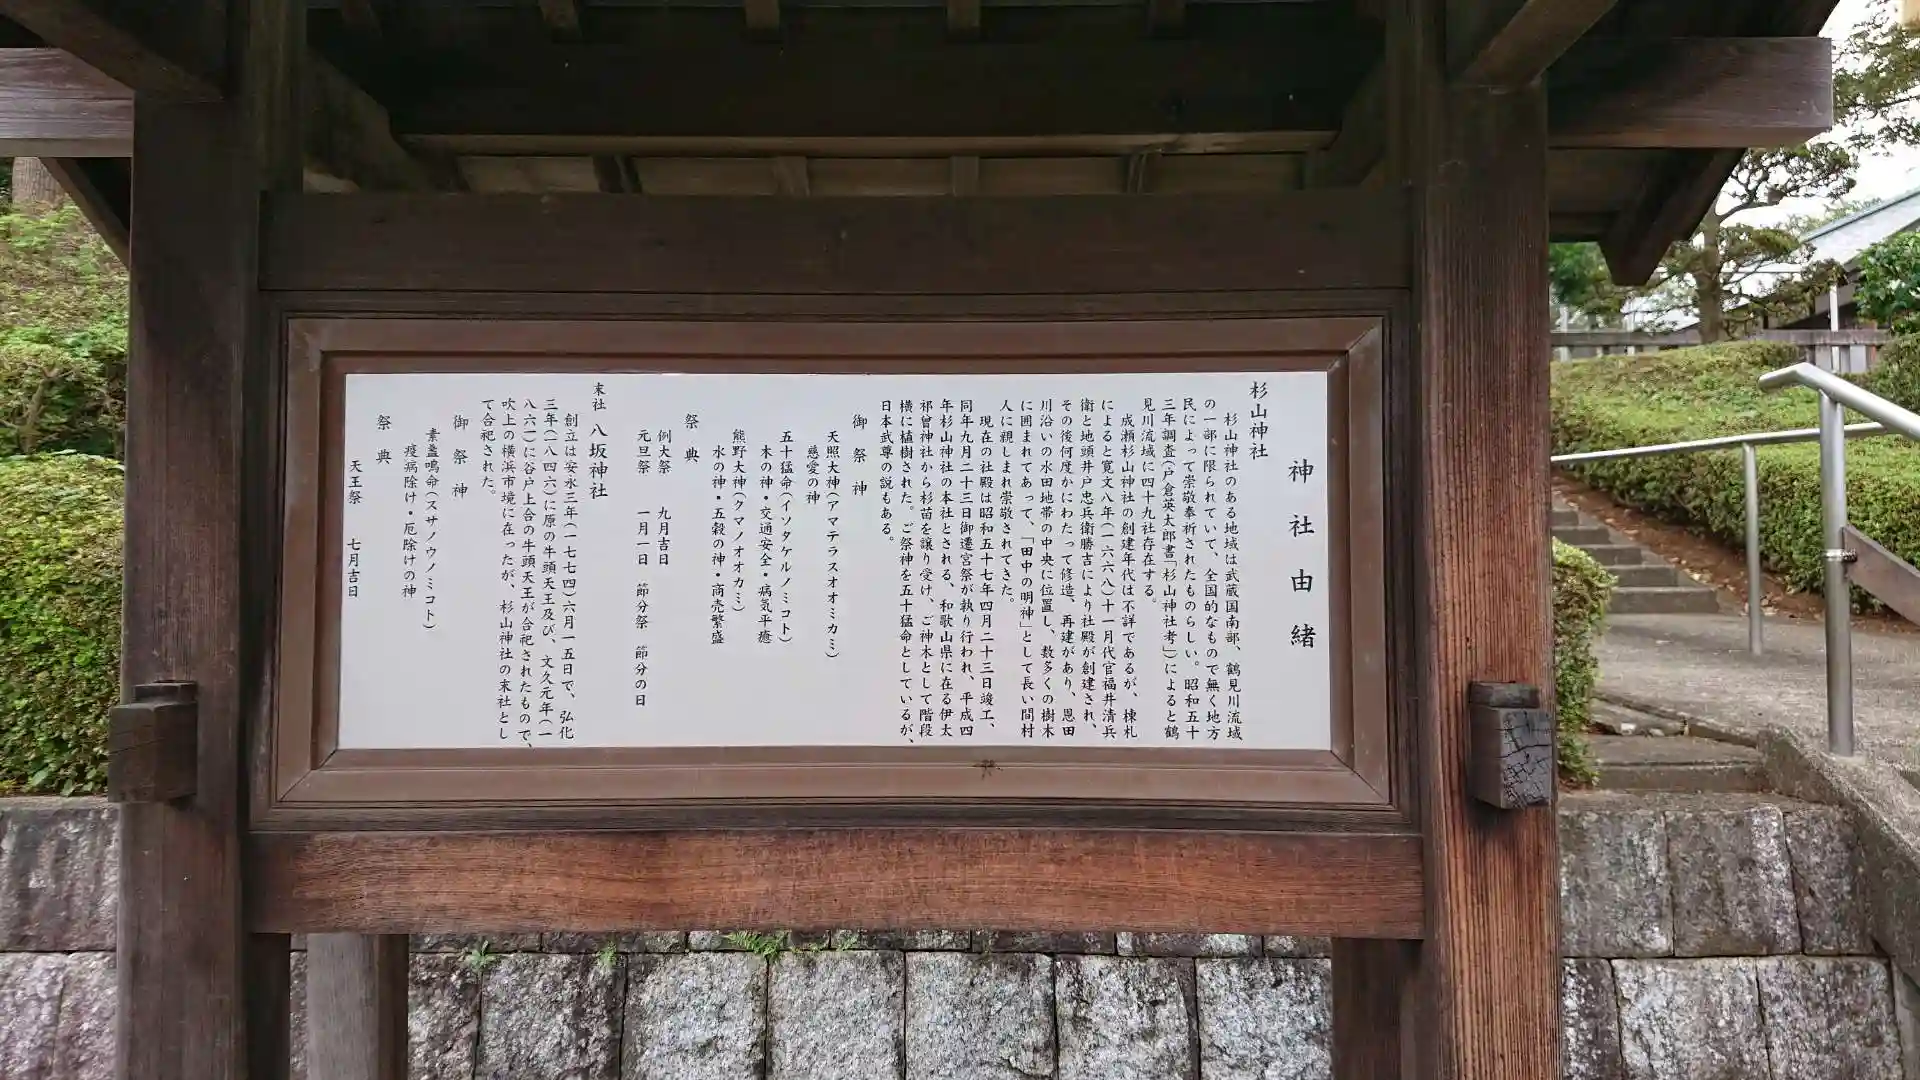 神社由緒
杉山神社
杉山神社のある地域は武蔵国南部、鶴見川流域
の一部に限られていて、全国的なもので無く地方
民によって崇敬奉祈されたものらしい。昭和五十
三年調査(戸倉英太郎書「杉山神社考」)によると鶴
見川流域に四十九社存在する。
成瀬杉山神社の創建年代は不詳であるが、棟札
によると寛文八年(一六六八)十一月代官福井清兵
衛と地頭井戸忠兵衛勝吉により社殿が創建され、
その後何度かにわたって修造、再建があり、恩田
川沿いの水田地帯の中央に位置し、数多くの樹木
に囲まれてあって、「田中の明神」として長い間村
人に親しまれ崇敬されてきた。
現在の社殿は昭和五十七年四月二十三日竣工、
同年九月二十三日御遷宮祭が執り行われ、平成四
年杉山神社の本社とされる、和歌山県に在る伊太
祁曽神社から杉苗を譲り受け、ご神木として階段
横に植樹された。ご祭神を五十猛命としているが、
日本武尊の説もある。
御祭神
天照大神(アマテラスオオミカミ)
慈愛の神
五十猛命(イソタケルノミコト)
木の神・交通安全・病気平癒
熊野大神(クマノオオカミ)
水の神・五穀の神・商売繁盛
祭典
例大祭 九月吉日
元旦祭 一月一日 節分祭 節分の日
末社 八坂神社
創立は安永三年(一七七四)六月一五日で、弘化
三年(一八四六)に原の牛頭天王及び、文久元年(一
八六一)に谷戸上合の牛頭天王が合祀されたもので、
吹上の横浜市境に在ったが、杉山神社の末社とし
て合祀された。
御祭神
素盞嗚命(スサノウノミコト)
疫病除け・厄除けの神
祭典
天王祭 七月吉日